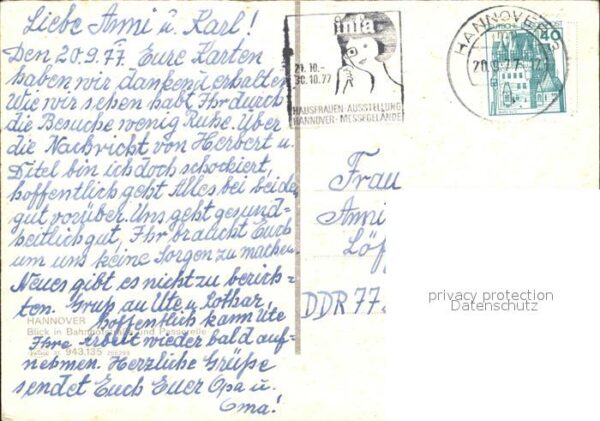 Liebe Anni u. Karl!
Den 20.9.77. Eure Karten
haben wir dankend erhalten
Wie wir sehen habt Ihr durch
die Besuche wenig Ruhe. Über
die Nachricht von Herbert u.
Ditel bin ich doch schockiert,
hoffentlich geht Alles bei beiden
gut vorüber. Uns geht gesund=
heitlich gut, Ihr braucht Euch
um uns keine Sorgen zu machen.
Neues gibt es nicht zu berich=
ten. Gruß an Ute u. Lothar,
hoffentlich kann Ute
Ihre Arbeit wieder bald auf=
nehmen. Herzliche Grüße
sendet Euch Euer Opa u.
Oma!
HANNOVER
Blick in Bahnhofstraße und Passerelle
943,135
infa
21.10.-
30.10.77
HAUSFRAUEN-AUSSTELLUNG
HANNOVER-MESSEGELÄNDE
HANNOVER
40
Frau
Anni
Löf
DDR 77
privacy protection
Datenschutz